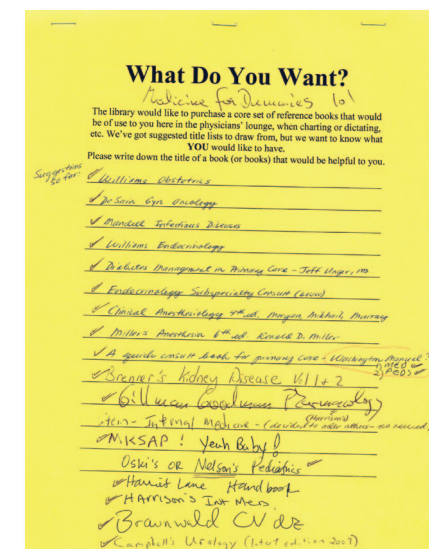 What Do You Want?
Medicine for Dummies lol
The library would like to purchase a core set of reference books that would
be of use to you here in the physicians' lounge, when charting or dictating,
etc. We've got suggested title lists to draw from, but we want to know what
YOU would like to have.
Please write down the title of a book (or books) that would be helpful to you.
Suggestions
so far:
✓ Williams Obstetrics
✓ DeSaia Gyn Oncology
✓ Mandell Infectious Diseases
✓ Williams Endocrinology
✓ Diabetes Management in Primary Care - Jeff Unger, MD
✓ Endocrinology Subspecialty Consult
✓ Clinical Anesthesiology 4th ed. Morgan, Mikhail, Murray
✓ Miller's Anesthesia 6th ed Ronald D. Miller
✓ A quick consult book for primary care - Washington Manual?
1) MED ✓
2) PEDS ✓
✓ Brenner's Kidney Disease Vol 1 + 2
✓ Gillman Goodman Pharmacology
(Harrison's)
item - Internal Medicine - (decided to order others - no need)
✓ MKSAP! Yeah Baby!
Oski's OR Nelson's Pediatrics ✓
✓ Harriet Lane Handbook
✓ HArrison's Int Med.
✓ Braunwald CV dz
✓ Campbell's Urology (latest edition 2007)